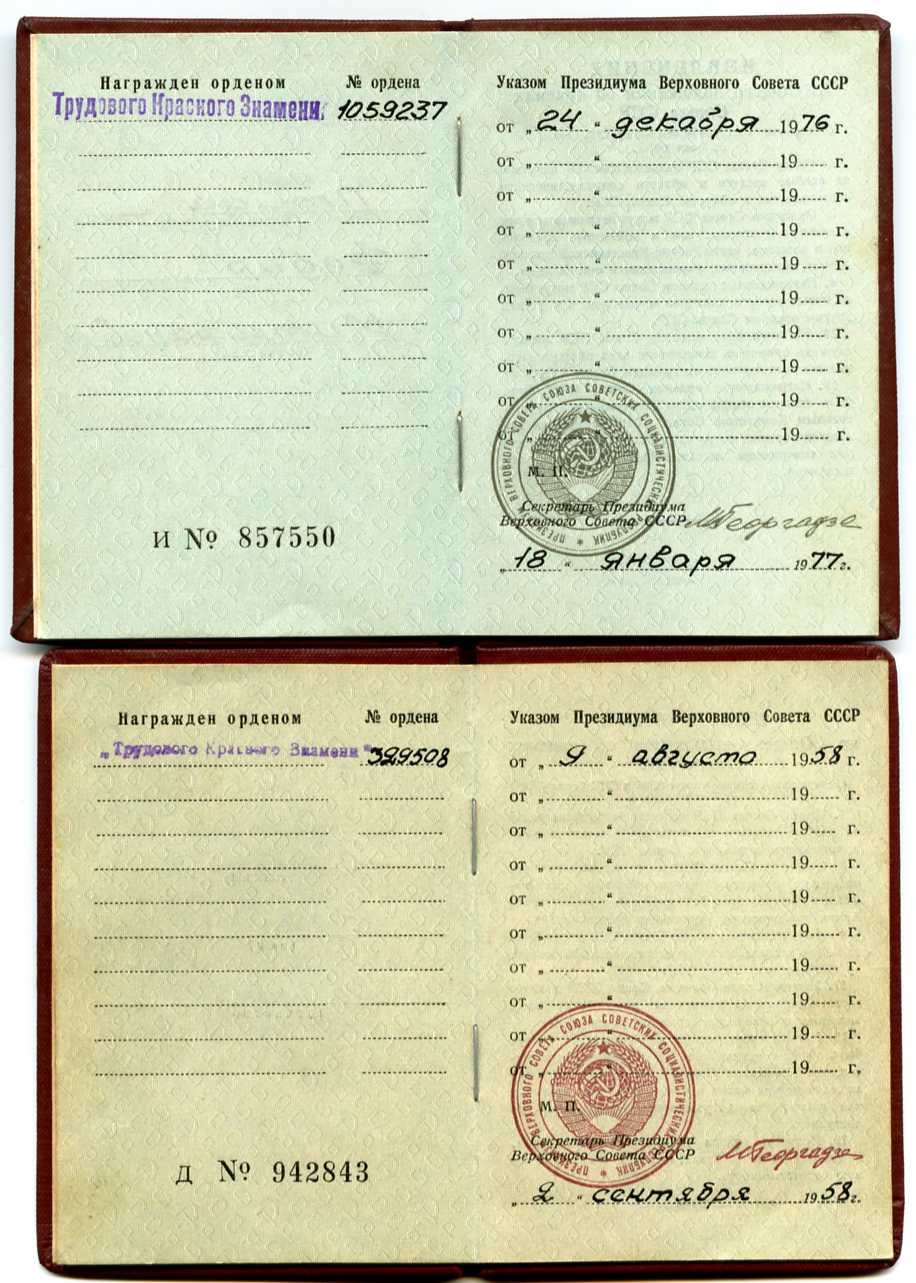 Награжден орденом № ордена
Трудового Красного Знамени 1059237
И № 857550
Указом Президиума Верховного Совета СССР
от „ 24 “ декабря 1976 г.
от „ “ 19 г.
от „ “ 19 г.
от „ “ 19 г.
от „ “ 19 г.
от „ “ 19 г.
от „ “ 19 г.
от „ “ 19 г.
от „ “ 19 г.
от „ “ 19 г.
ПРЕЗИДИУМ ВЕРХОВНОГО СОВЕТА СОЮЗА СОВЕТСКИХ СОЦИАЛИСТИЧЕСКИХ РЕСПУБЛИК *
М. П.
Секретарь Президиума
Верховного Совета СССР МГеоргадзе
„ 18 “ января 1977 г.
Награжден орденом № ордена
„Трудового Красного Знамени“ 399508
Д № 942843
Указом Президиума Верховного Совета СССР
от „ 9 “ августа 1958 г.
от „ “ 19 г.
от „ “ 19 г.
от „ “ 19 г.
от „ “ 19 г.
от „ “ 19 г.
от „ “ 19 г.
от „ “ 19 г.
от „ “ 19 г.
от „ “ 19 г.
ПРЕЗИДИУМ ВЕРХОВНОГО СОВЕТА СОЮЗА СОВЕТСКИХ СОЦИАЛИСТИЧЕСКИХ РЕСПУБЛИК *
М. П.
Секретарь Президиума
Верховного Совета СССР МГеоргадзе
„ 2 “ сентября 1958 г.